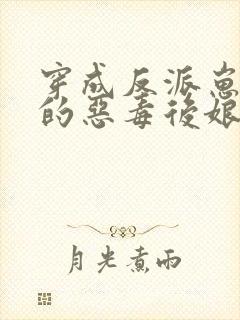 穿成反派崽
的惡毒後娘
月光煮雨